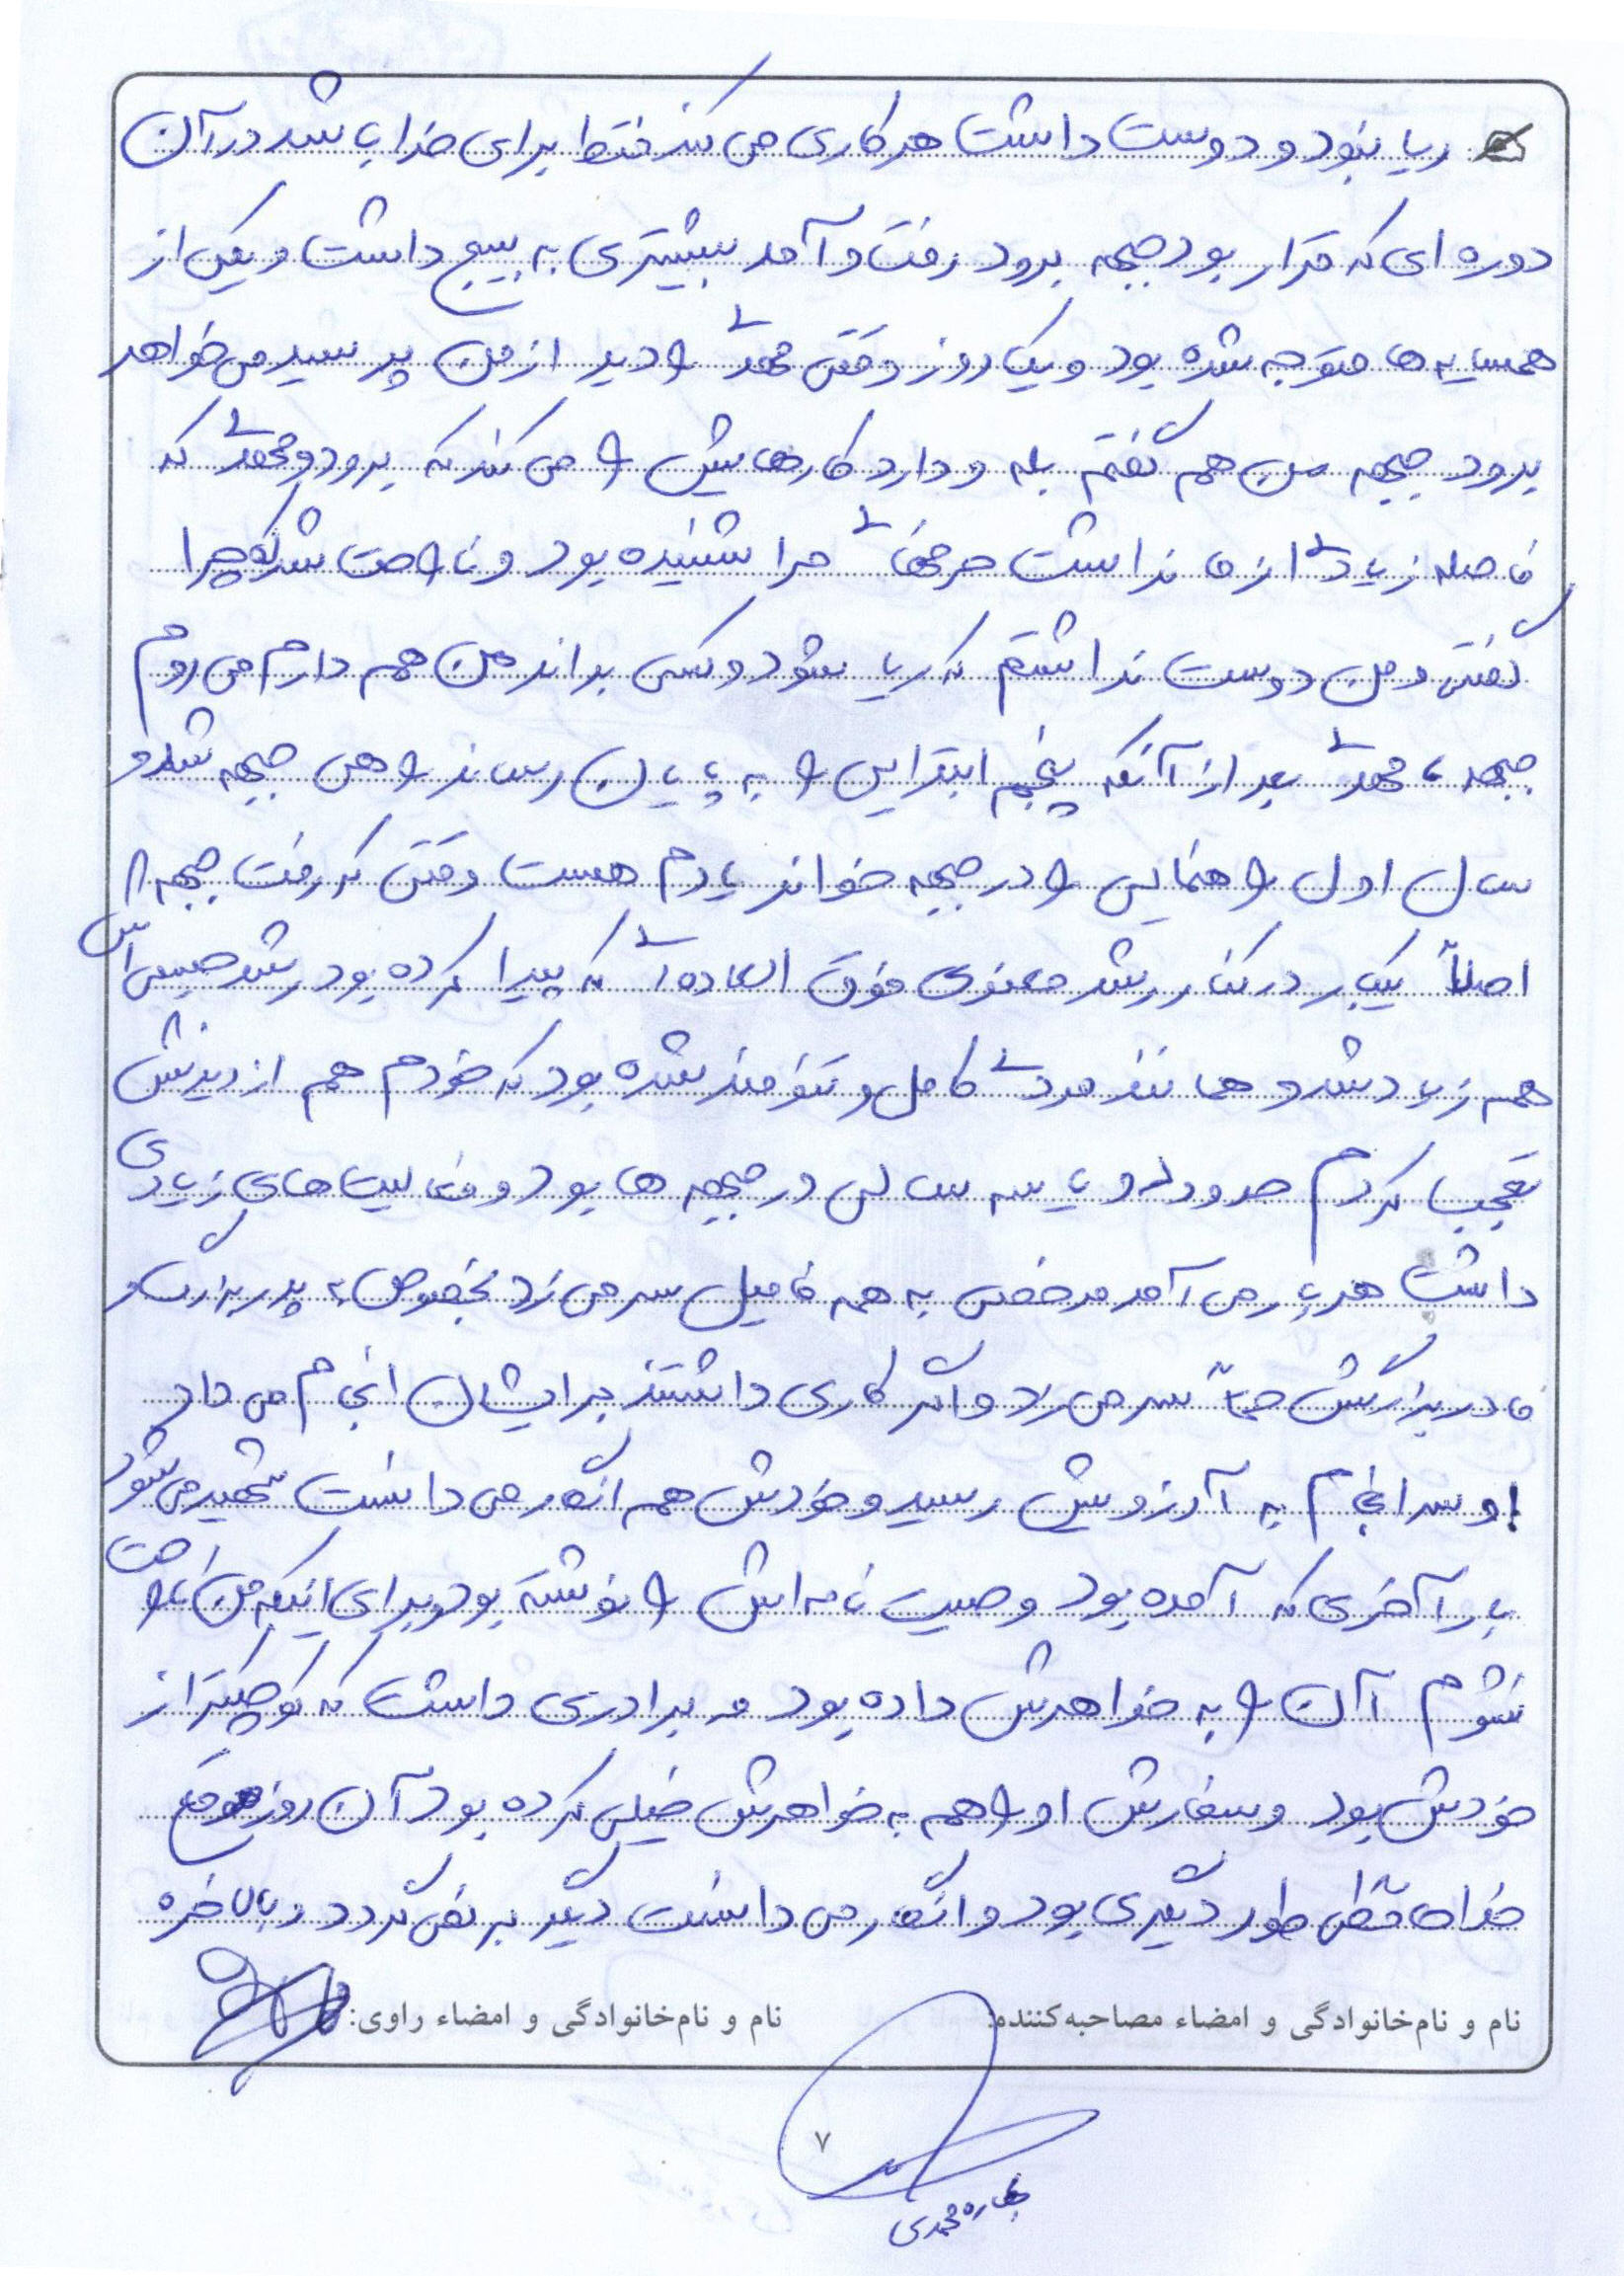 ریا نبود و دوست داشت هر کاری می کند فقط برای خدا باشد در آن
دوره ای که قرار بود جبهه برود رفت و آمد بیشتری به بسیج داشت و یکی از
همسایه ها متوجه شده بود و یک روز وقتی محمد را دید از من پرسید می خواهد
برود جبهه من هم گفتم بله و دارد کارهایش را می کند که برود و محمد که
فاصله زیادی از ما نداشت حرفهای مرا شنیده بود و ناراحت شد که چرا
گفتی و من دوست نداشتم که ریا بشود و کسی بداند من هم دارم می روم
جبهه، محمد بعد از آنکه پنجم ابتدایی را به پایان رساند راهی جبهه شد و
سال اول راهنمایی را در جبهه خواند یادم هست وقتی که رفت جبهه
اصلاً یکبار در کنار رشد معنوی فوق العاده ای که پیدا کرده بود رشد جسمی اش
هم زیاد شد و همانند مردی کامل و تنومند شده بود که خودم هم از دیدنش
تعجب کردم حدود دو یا سه سالی در جبهه ها بود و فعالیت های زیادی
داشت هر بار می آمد مرخصی به همه فامیل سر می زد بخصوص به پدربزرگ و
مادربزرگش حتماً سر می زد و اگر کاری داشتند برایشان انجام می داد
او سرانجام به آرزویش رسید و خودش هم انگار می دانست شهید می شود
بار آخری که آمده بود وصیت نامه اش را نوشته بود و برای اینکه من ناراحت
نشوم آن را به خواهرش داده بود و برادری داشت که کوچکتر از
خودش بود و سفارش او را هم به خواهرش خیلی کرده بود آن روز موقع
خداحافظی طور دیگری بود و انگار می دانست دیگر بر نمی گردد و بالاخره
نام و نام‌خانوادگی و امضاء مصاحبه‌کننده: نام و نام‌خانوادگی و امضاء راوی:
۷
محمدی